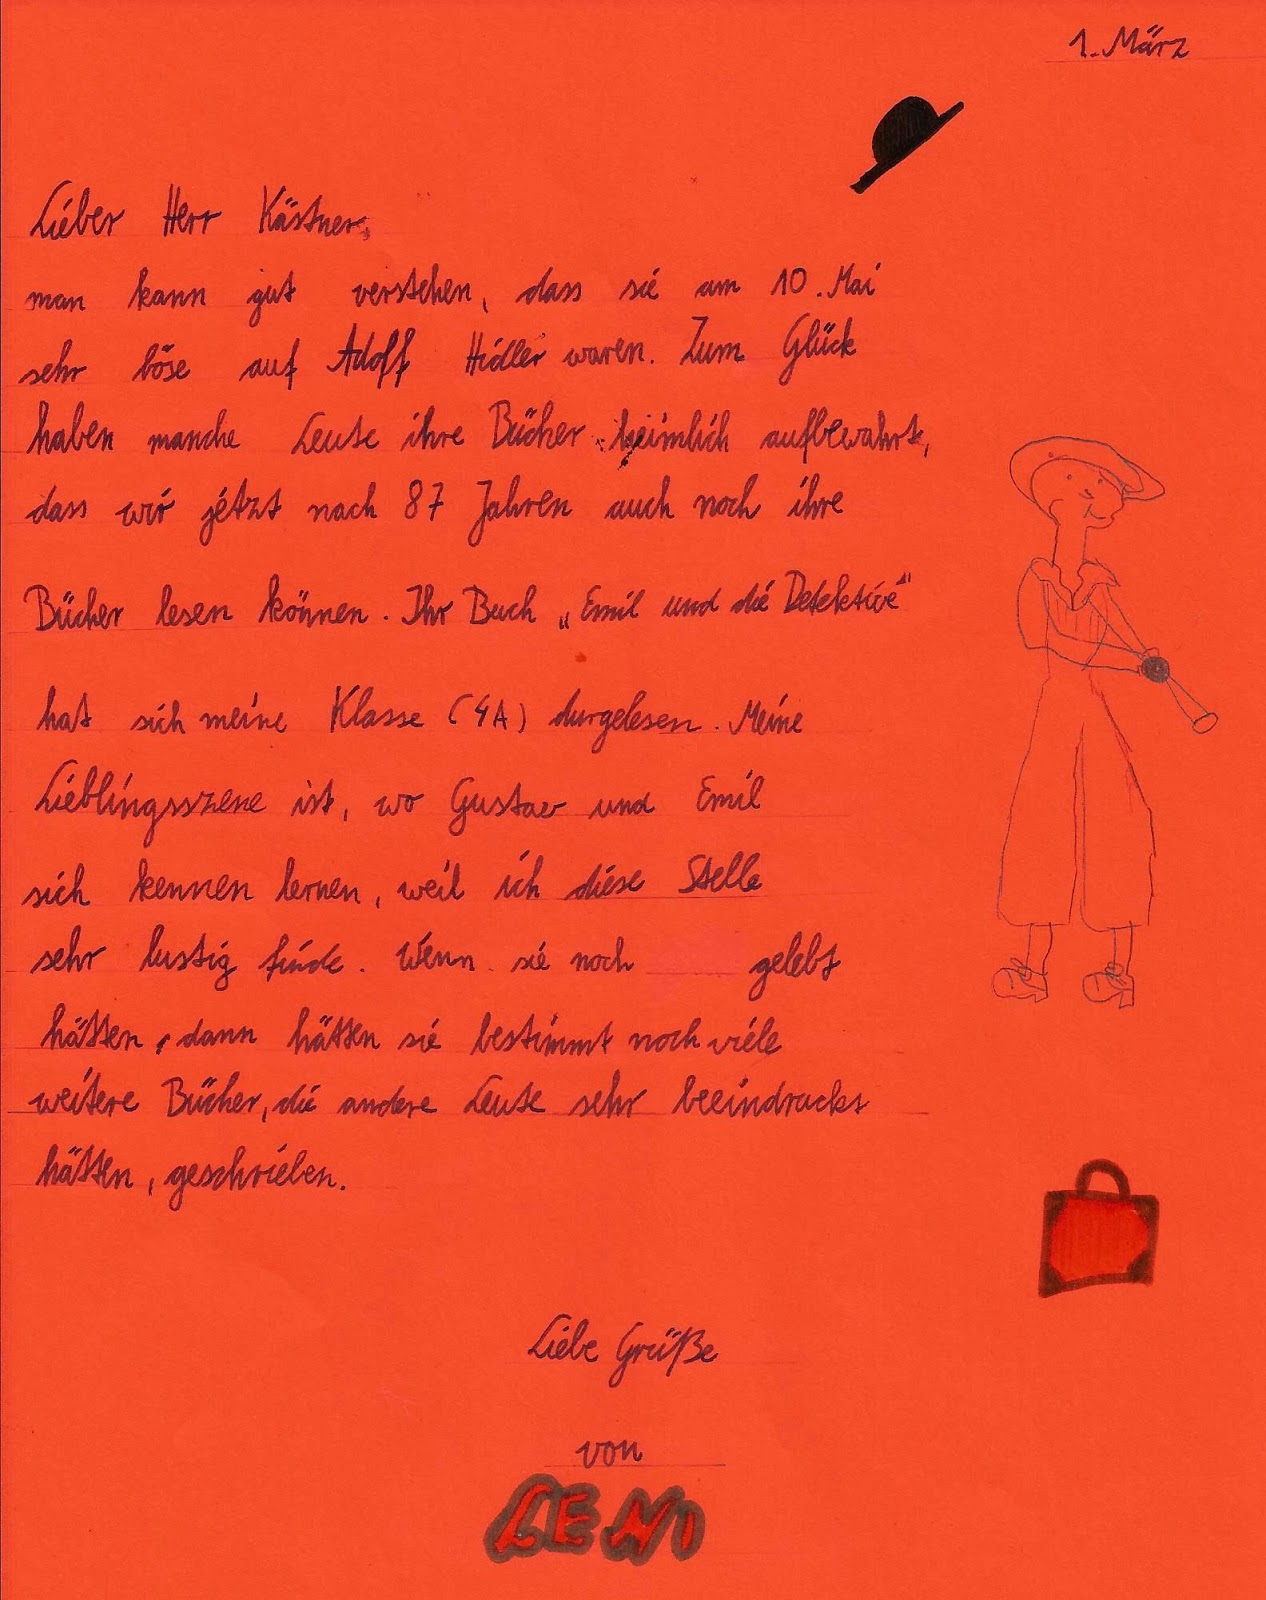 1. März
Lieber Herr Kästner,
man kann gut verstehen, dass sie am 10. Mai
sehr böse auf Adolf Hidler waren. Zum Glück
haben manche Leute ihre Bücher heimlich aufbewahrt,
dass wir jetzt nach 87 Jahren auch noch ihre
Bücher lesen können. Ihr Buch „Emil und die Detektive"
hat sich meine Klasse (4A) durgelesen. Meine
Lieblingsszene ist, wo Gustav und Emil
sich kennen lernen, weil ich diese Stelle
sehr lustig finde. Wenn sie noch gelebt
hätten, dann hätten sie bestimmt noch viele
weitere Bücher, die andere Leute sehr beeindruckt
hätten, geschrieben.
Liebe Grüße
von
LENI